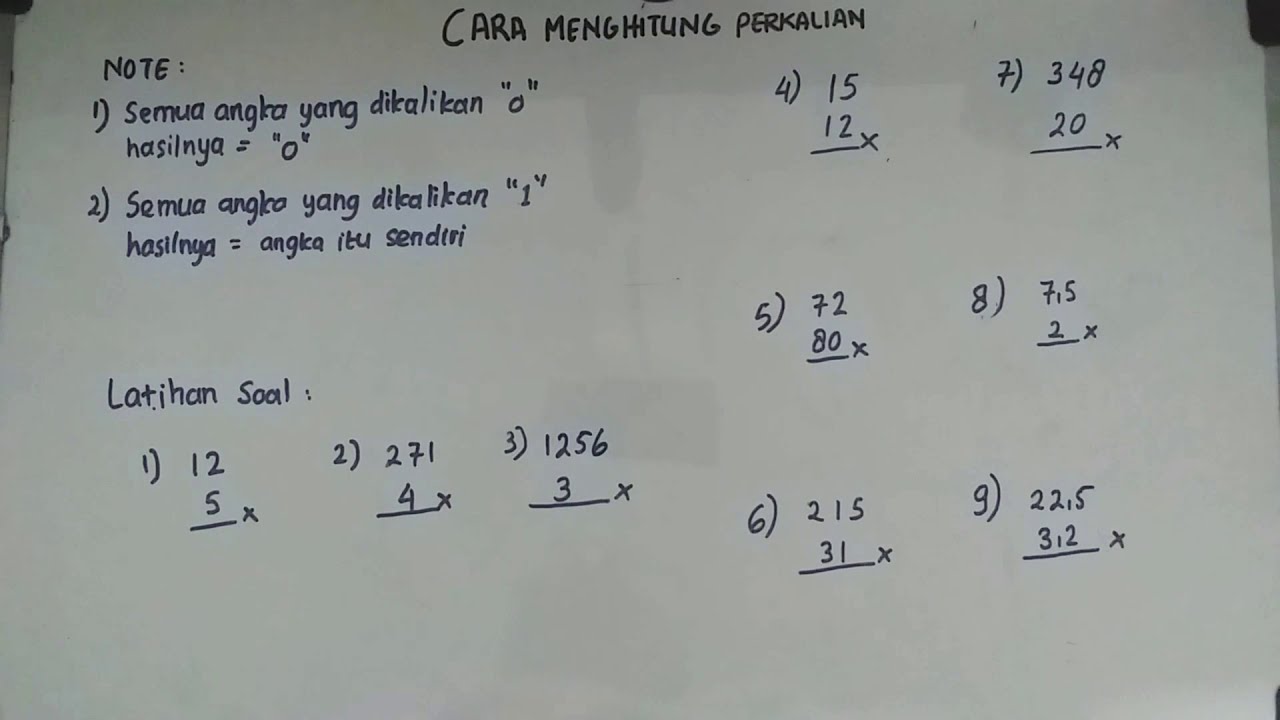 CARA MENGHITUNG PERKALIAN
NOTE :
1) Semua angka yang dikalikan "0"
hasilnya = "0"
2) Semua angka yang dikalikan "1"
hasilnya = angka itu sendiri
Latihan Soal :
1) 12
5 x
2) 271
4 x
3) 1256
3 x
4) 15
12 x
5) 72
80 x
6) 215
31 x
7) 348
20 x
8) 7,5
2 x
9) 22,5
3,2 x